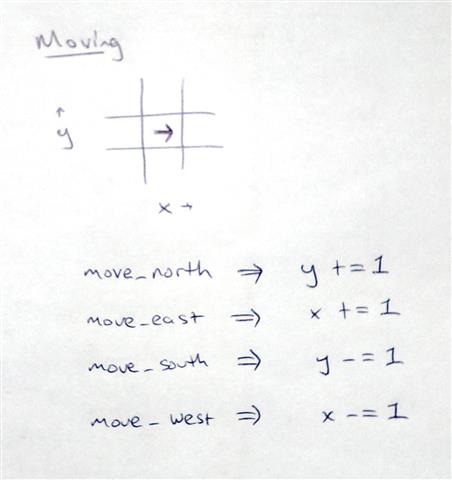 Moving
↑
y
→
x →
move_north ⇒ y += 1
move_east ⇒ x += 1
move_south ⇒ y -= 1
move_west ⇒ x -= 1